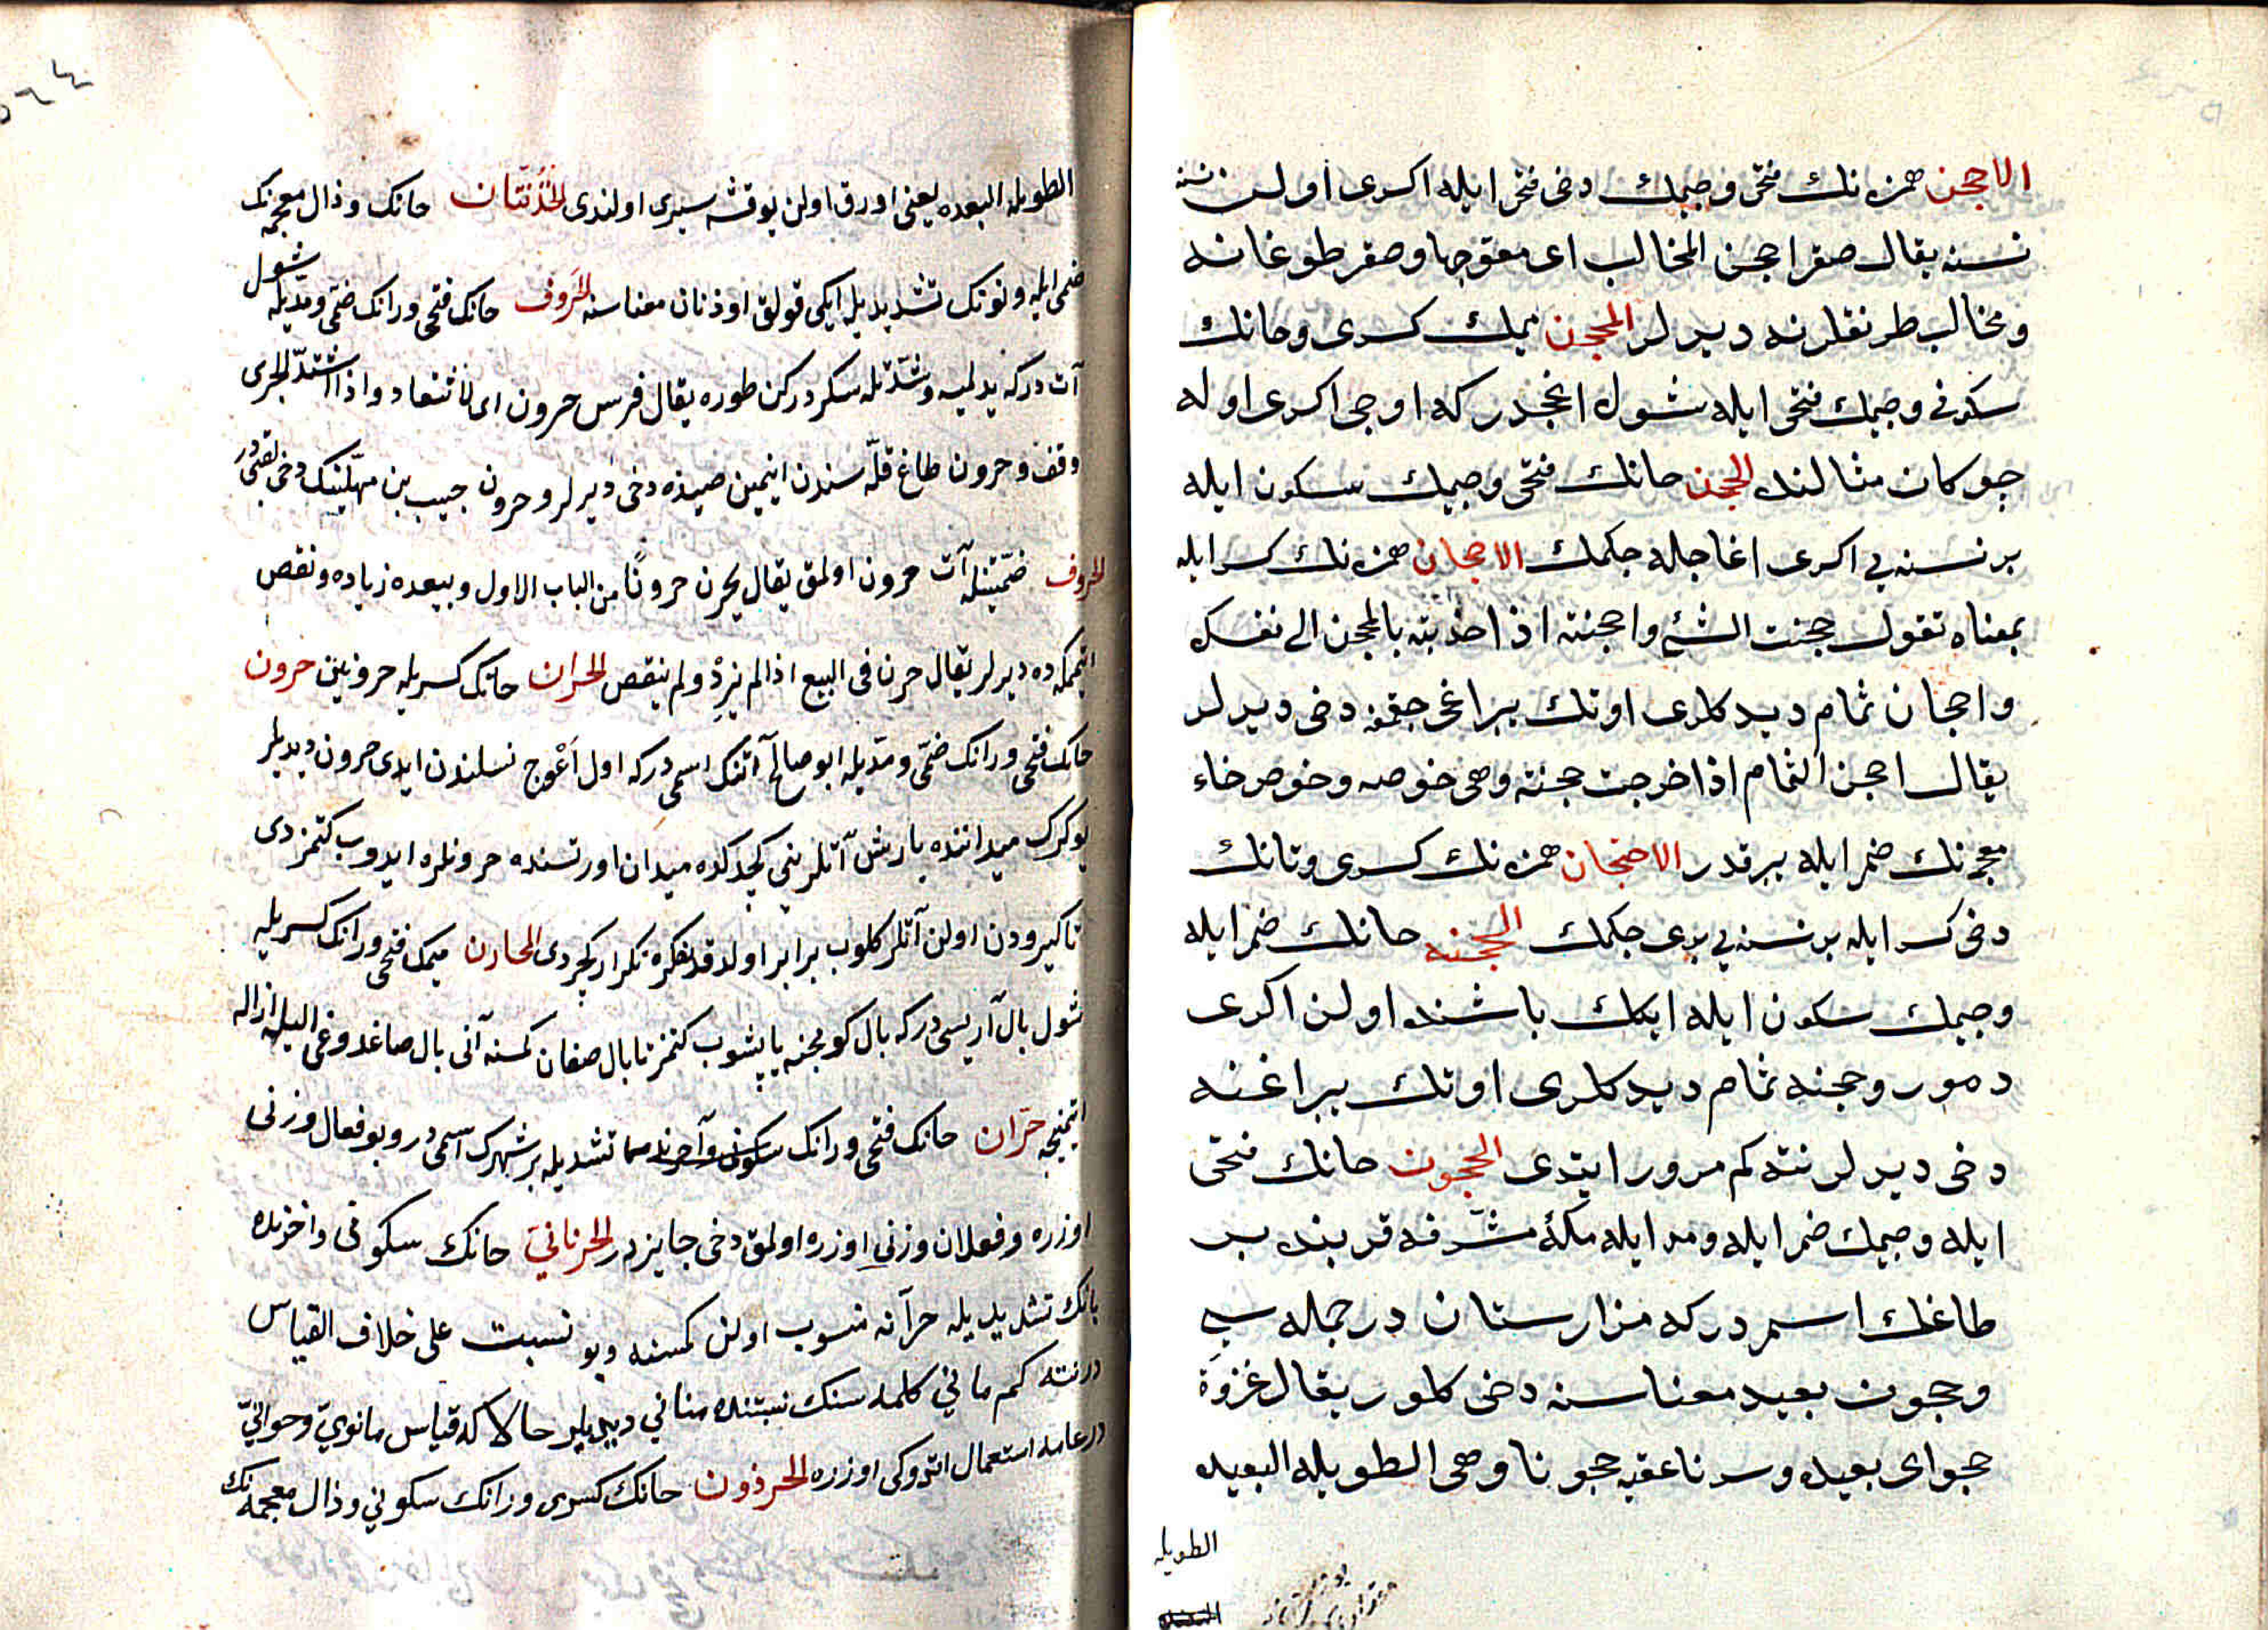 الاحجن همزه‌نك فتحى وجيمك دخى فتحى ايله اكرى اولن نسنه
نسنه يقال صقر احجن المخالب اى معوّجها وصقر طوغانه
ومخالب طرنقلرنه ديرلر المحجن ميمك كسرى وحانك
سكونى وجيمك فتحى ايله شول اغجدر كه اوجى اكرى اوله
جوكان مثالنده الحجن حانك فتحى وجيمك سكون ايله
بر نسنه‌يى اكرى اغاجله جكمك الاحجان همزه‌نك كسر ايله
بمعناه تقول حجنت الشئ واحجنته اذا جذبته بالمحجن الى نفسك
واحجان ثمام ديدكلرى اوتك براغى جقمغه دخى ديرلر
يقال احجن الثمام اذا خرجت حجنته وهى خوصه وخوص خاء
معجمه‌نك ضم ايله يبرقدر الاحتجان همزه‌نك كسرى وتانك
دخى كسر ايله بر نسنه‌يى بدى جكمك الحجنه حانك ضم ايله
وجيمك سكون ايله ايكك باشنده اولن اكرى
دمور وحجنه ثمام ديدكلرى اوتك يبراغنه
دخى ديرلر نته كم مرور ايتدى الحجون حانك فتحى
ايله وجيمك ضم ايله ومد ايله مكّهٔ مشرّفه قربنده بر
طاغك اسمدر كه مزارستان در جمله سى
وحجون بعيد معناسنه دخى كلور يقال غزوة
حجواى بعيده وسرنا عقبه حجونا وهى الطويله البعيده
الطويله
الطويله البعده يعنى اورق اولن يوقشه سيرى اولندى الحذنتان حانك وذال معجمه‌نك
ضمى ايله ونونك تشديديله ايكى قولق اوذنان معناسنه الحروف حانك فتحى ورانك ضمّى ومدّيله شول
آت دركه يدلميه وشدّتله سكردركن طوره يقال فرس حرون اى لا ينقاد واذا اشتدّ الجرى
وقف وحرون طاغ قلّه سندن اينمين صيده دخى ديرلر وحرون حبيب بن مهلّبنك دخى لقبى در
الحروف ضمّتينله آت حرون اولمق يقال يحرن حرونًا من الباب الاول وبيعده زياده ونقص
ايتمكده ديرلر يقال حرن فى البيع اذا لم يزد ولم ينقص الحران حانك كسريله حرونلق حرون
حانك فتحى ورانك ضمّى ومدّيله ابو صالح آتنك اسمى دركه اول اَعْوج نسلندن ايدى حرون ديديلر
يوكرك ميداننده يارش آتلرينى كچدكده ميدان اورتسنده حرونلره ايدوب كتمزدى
تا كيرودن اولن آتلر كلوب برابر اولدقدنصكره تكرار كچردى المحارن ميمك فتحى ورانك كسريله
شول بال آريسى دركه بال كوبجنه ياپشوب كتمز تا بال صغان كمسنه آنى بال صاغدوغى اليله ازاله
ايتمينجه حرّان حانك فتحى ورانك تشديديله بر شهرك اسمى در وبو فعال وزنى
اوزره وفعلان وزنى اوزره اولمق دخى جايزدر الحرنانىّ حانك سكونى واخرنده
يانك تشديديله حرآنه منسوب اولن كمسنه وبو نسبت على خلاف القياس
در نته كم مانى كلمه سنك نسبتنده منانى ديديلر حالا كه قياس مانوىّ وحرانىّ
در عامه استعمال اتدوكى اوزره الحرذون حانك كسرى ورانك سكونى وذال معجمه‌نك